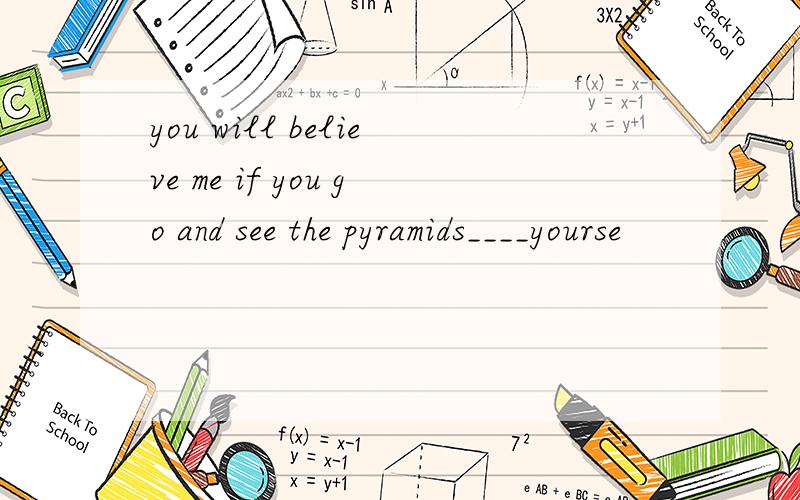 sin A
3X2
Back To
School
ax2 + bx +c = 0
x
α
f(x) = x-1
y = x-1
x = y+1
C
you will belie
ve me if you g
o and see the pyramids____yourse
Back To
School
f(x) = x-1
y = x-1
x = y+1
7²
e AB + e BC =